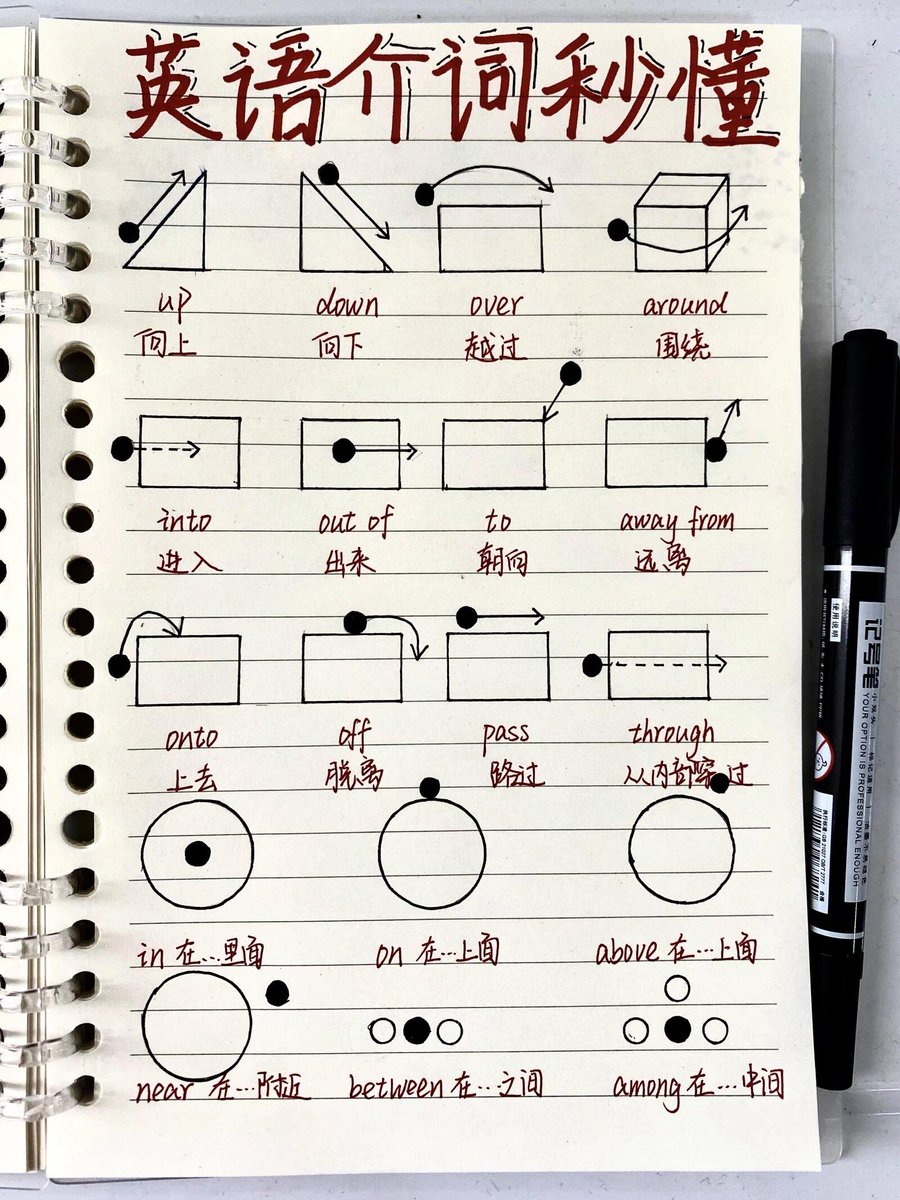 英语介词秒懂
up down over around
向上 向下 越过 围绕
into out of to away from
进入 出来 朝向 远离
onto off pass through
上去 脱离 路过 从内部穿过
in 在…里面 on 在…上面 above 在…上面
near 在…附近 between 在…之间 among 在…中间
使用说明
记号笔
小双头 | 标记适用 | 油墨不易褪色
YOUR OPTION IS PROFESSIONAL ENOUGH
合格